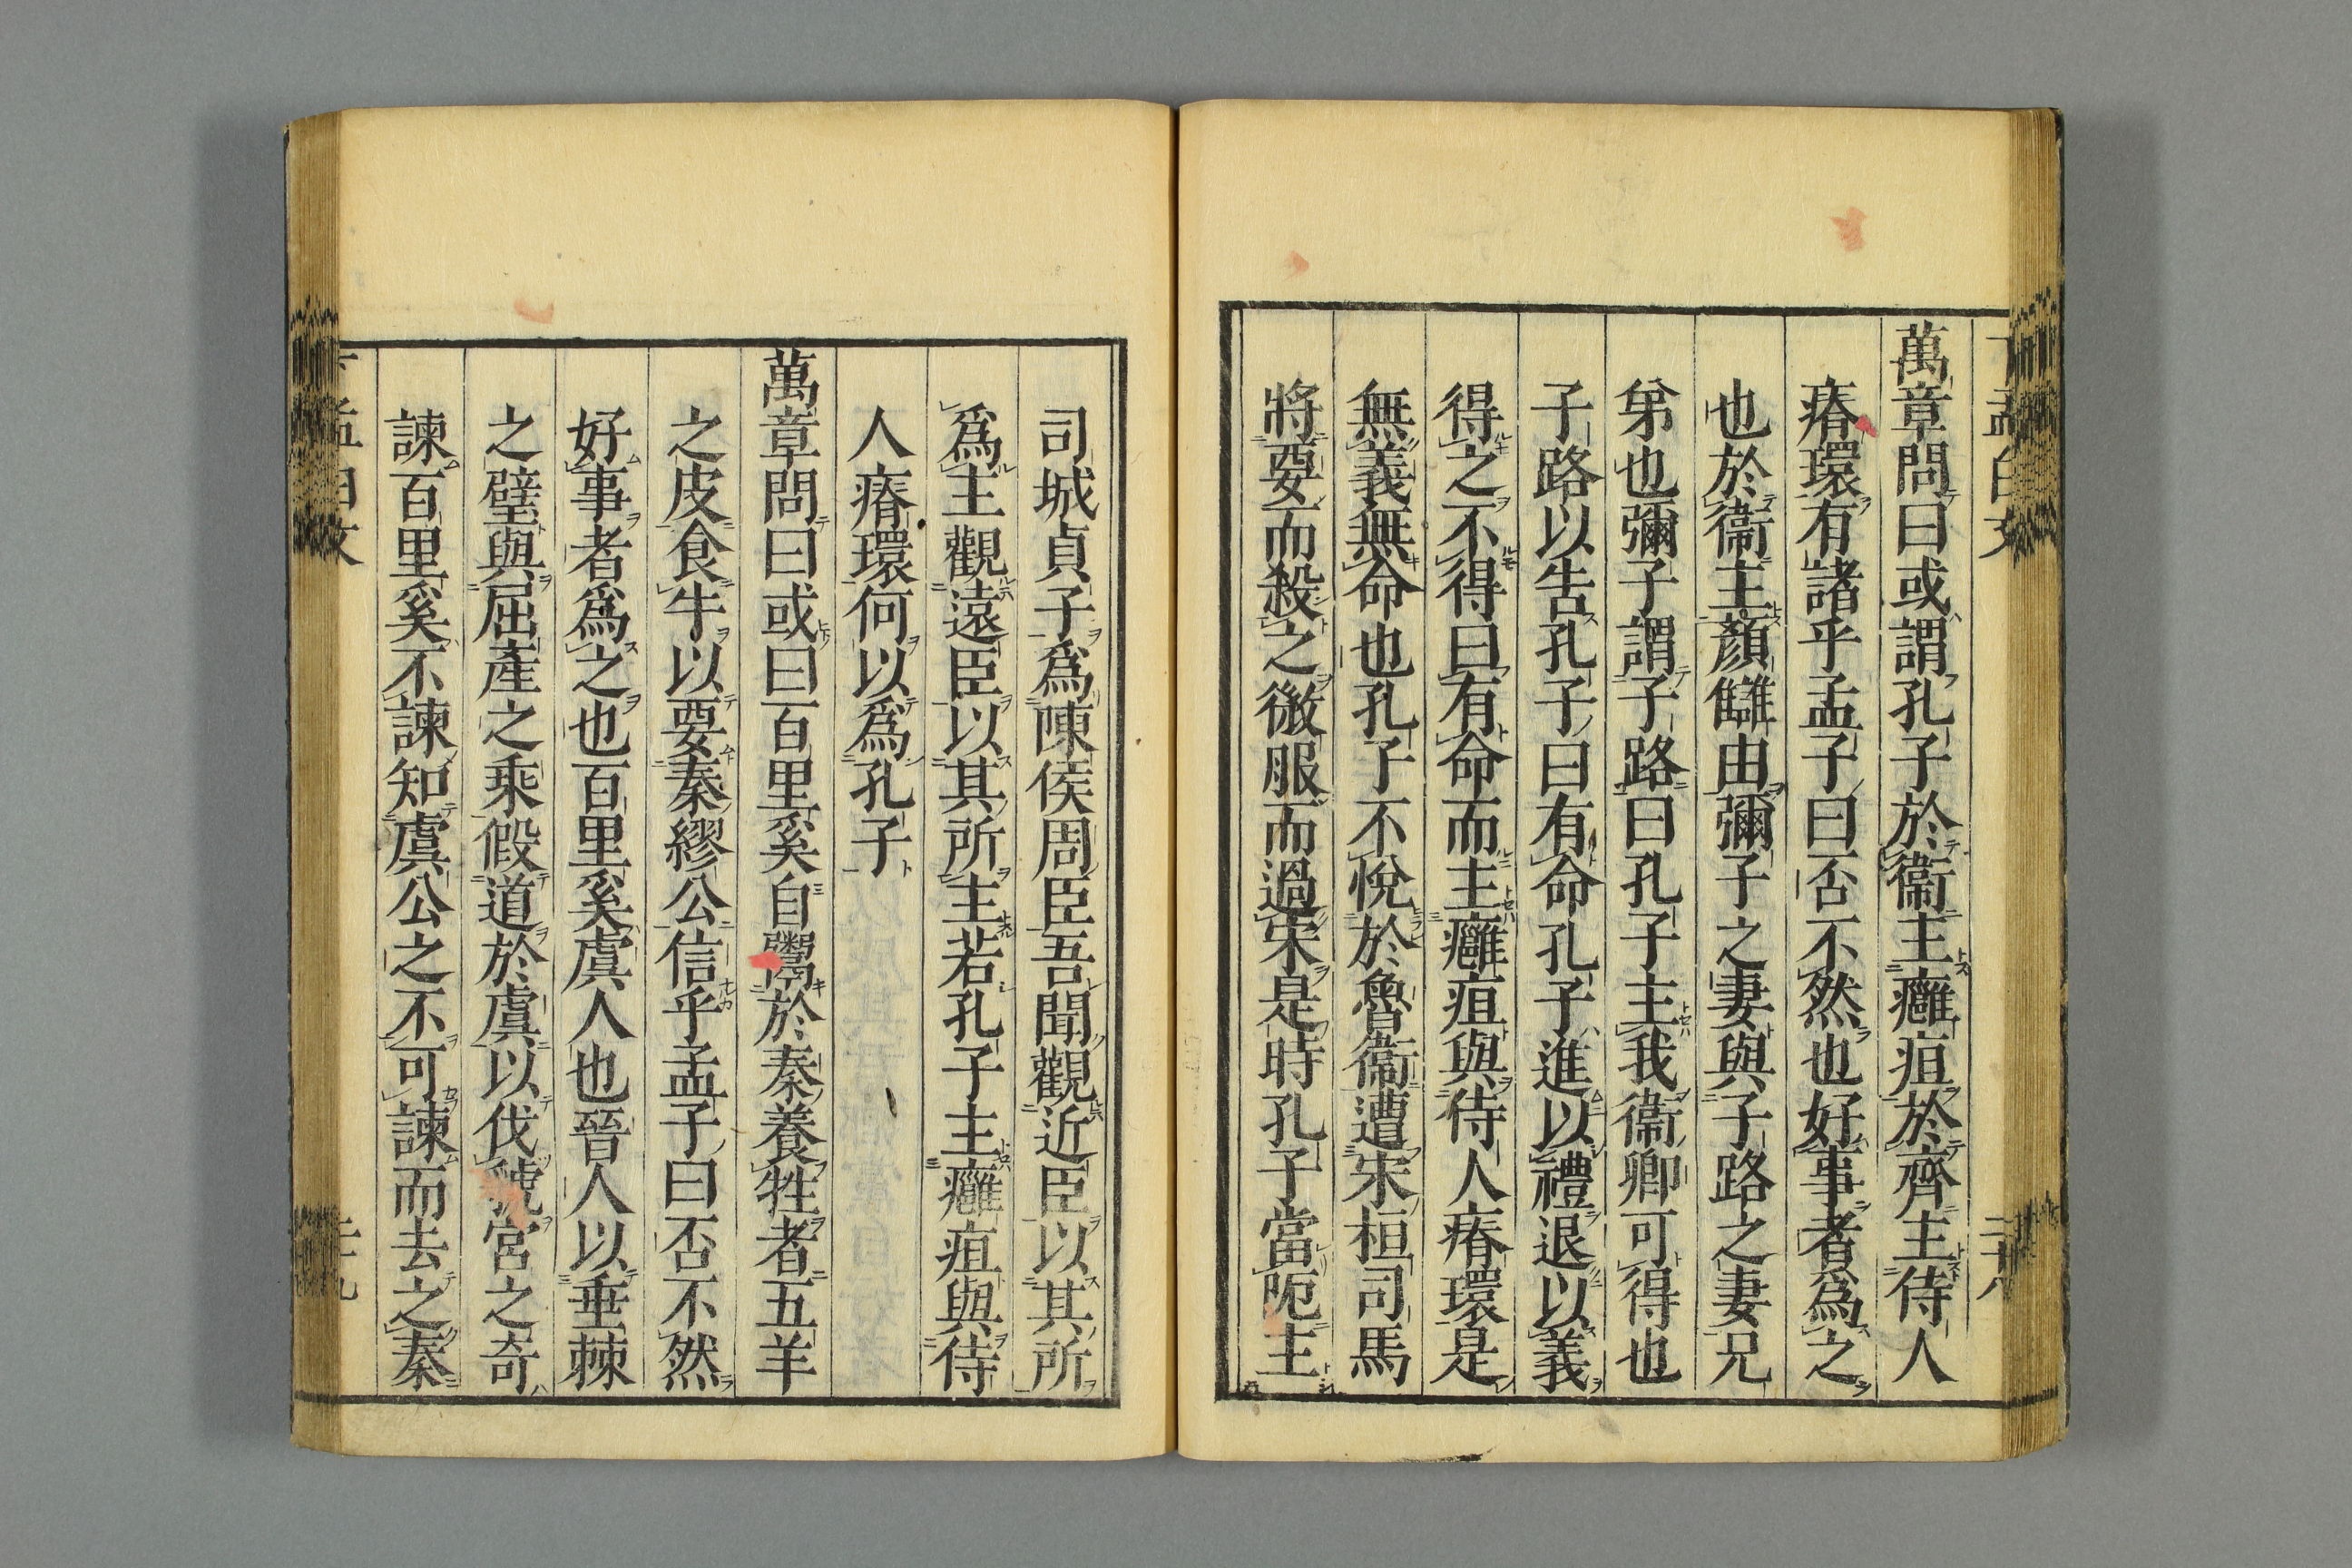 萬章問曰或謂孔子於衞主癰疽於齊主侍人
瘠環有諸乎孟子曰否不然也好事者爲之
也於衞主顏讎由彌子之妻與子路之妻兄
弟也彌子謂子路曰孔子主我衞卿可得也
子路以告孔子曰有命孔子進以禮退以義
得之不得曰有命而主癰疽與侍人瘠環是
無義無命也孔子不悅於魯衞遭宋桓司馬
將要而殺之微服而過宋是時孔子當阨主
司城貞子爲陳侯周臣吾聞觀近臣以其所
爲主觀遠臣以其所主若孔子主癰疽與侍
人瘠環何以爲孔子
萬章問曰或曰百里奚自鬻於秦養牲者五羊
之皮食牛以要秦繆公信乎孟子曰否不然
好事者爲之也百里奚虞人也晉人以垂棘
之璧與屈產之乘假道於虞以伐虢宮之奇
諫百里奚不諫知虞公之不可諫而去之秦